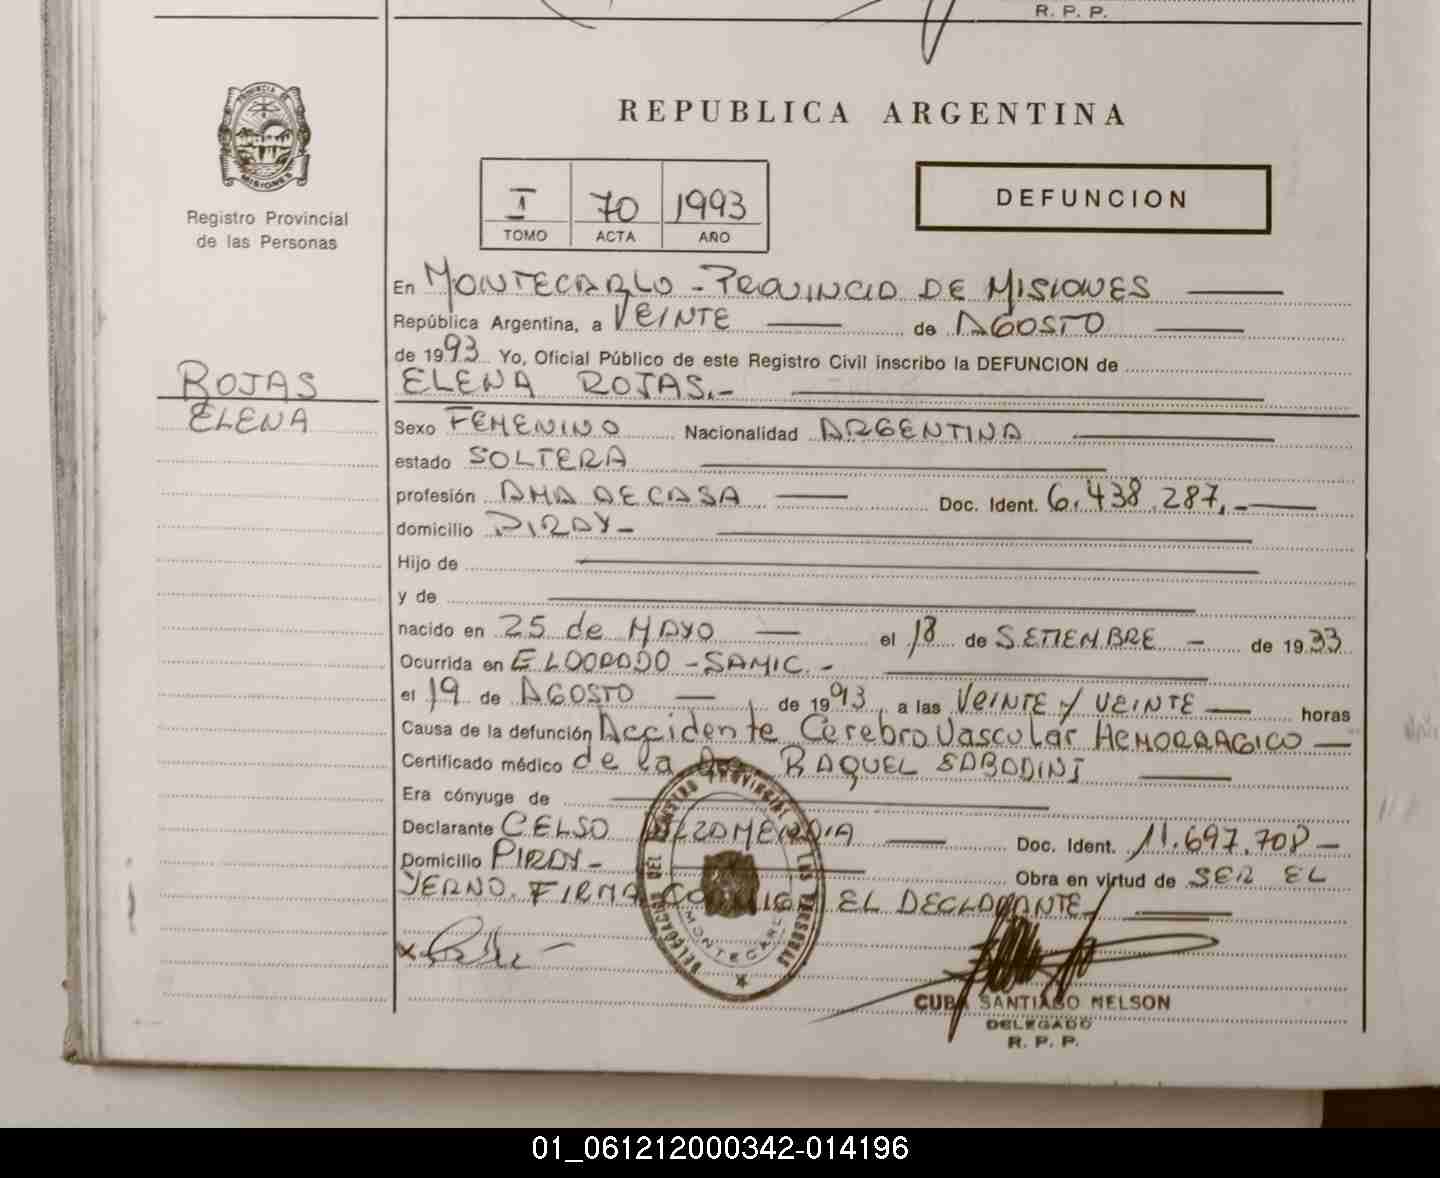 R. P. P.
PROVINCIA DE
MISIONES
Registro Provincial
de las Personas
REPUBLICA ARGENTINA
I 70 1993
TOMO ACTA AÑO
DEFUNCION
En MONTECARLO - PROVINCIA DE MISIONES
República Argentina, a VEINTE de AGOSTO
de 1993 Yo, Oficial Público de este Registro Civil inscribo la DEFUNCION de
ROJAS
ELENA
ELENA ROJAS.-
Sexo FEMENINO Nacionalidad ARGENTINA
estado SOLTERA
profesión AMA DE CASA Doc. Ident. 6.438.287.-
domicilio PIRAY-
Hijo de
y de
nacido en 25 de MAYO el 18 de SETIEMBRE - de 1933
Ocurrida en ELDORADO - SAMIC.-
el 19 de AGOSTO de 1993, a las VEINTE Y VEINTE horas
Causa de la defunción Accidente Cerebro Vascular HEMORRAGICO
Certificado médico de la Dra RAQUEL SABODINI
Era cónyuge de
Declarante CELSO ALZAMENDIA Doc. Ident. 11.697.708-
Domicilio PIRAY- Obra en virtud de SER EL
YERNO. FIRMA CONMIGO EL DECLARANTE
DELEGACION DEL REGISTRO PROVINCIAL DE LAS PERSONAS
MONTECARLO
X
CUBA SANTIAGO NELSON
DELEGADO
R. P. P.
01_061212000342-014196